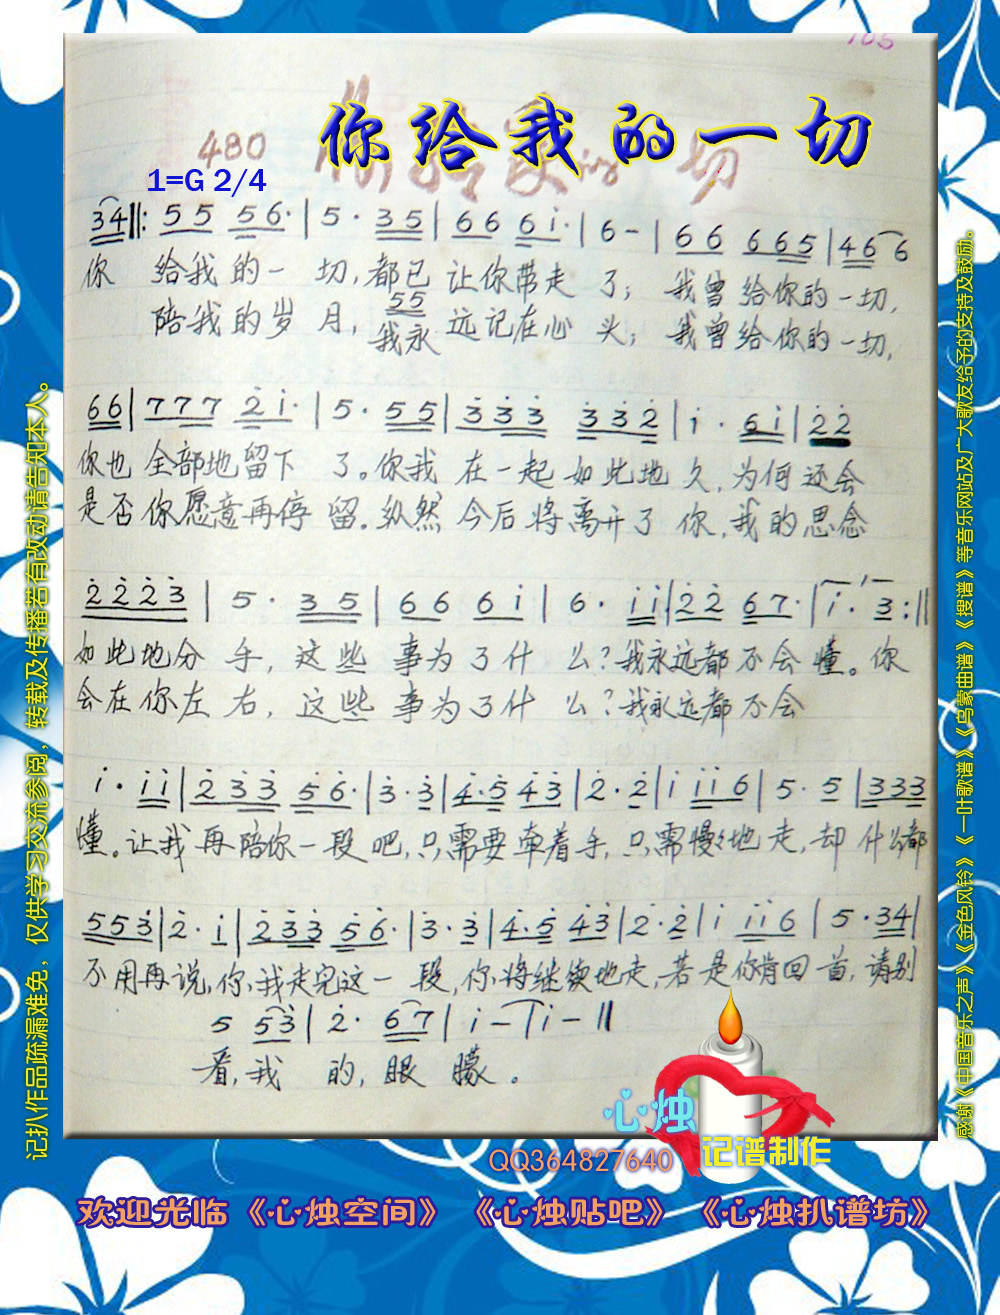 105
你给我的一切
480
1=G 2/4
34‖: 55 56· | 5· 35 | 66 6i· | 6- | 66 665 | 46 6
你 给我的一 切,都已 让你带走 了; 我曾给你的一切,
55
陪我的岁 月,我永 远记在心 头; 我曾给你的一切,
66 | 777 2i· | 5· 55 | 333 332 | i· 6i | 22
你也 全部地留下 了。你我 在一起如此地 久,为何还会
是否 你愿意再停 留。纵然 今后将离开了 你,我的思念
2223 | 5· 35 | 66 6i | 6· ii | 22 67· | i· 3 :‖
如此地分 手, 这些 事为了什 么?我永远都不会 懂。你
会在你左 右, 这些 事为了什 么?我永远都不会
i· ii | 233 56· | 3·3 | 4·5 43 | 2·2 | i ii6 | 5· 5 | 333
懂。让我 再陪你一段 吧,只需要牵着 手,只需慢々地 走,却 什么都
553 | 2· i | 233 56· | 3·3 | 4·5 43 | 2·2 | i ii6 | 5·34 |
不用再说,你,我走完这一 段,你,将继续地走,若是你肯回 首,请别
5 53 | 2· 67 | i- | i- ‖
看,我 的,眼 朦。
心烛
记谱制作
QQ364827640
欢迎光临《心烛空间》《心烛贴吧》《心烛扒谱坊》
记扒作品疏漏难免，仅供学习交流参阅，转载及传播若有改动请告知本人。
感谢《中国音乐之声》《金色风铃》《一叶歌谱》《鸟蒙曲谱》《搜谱》等音乐网站及广大歌友给予的支持及鼓励。